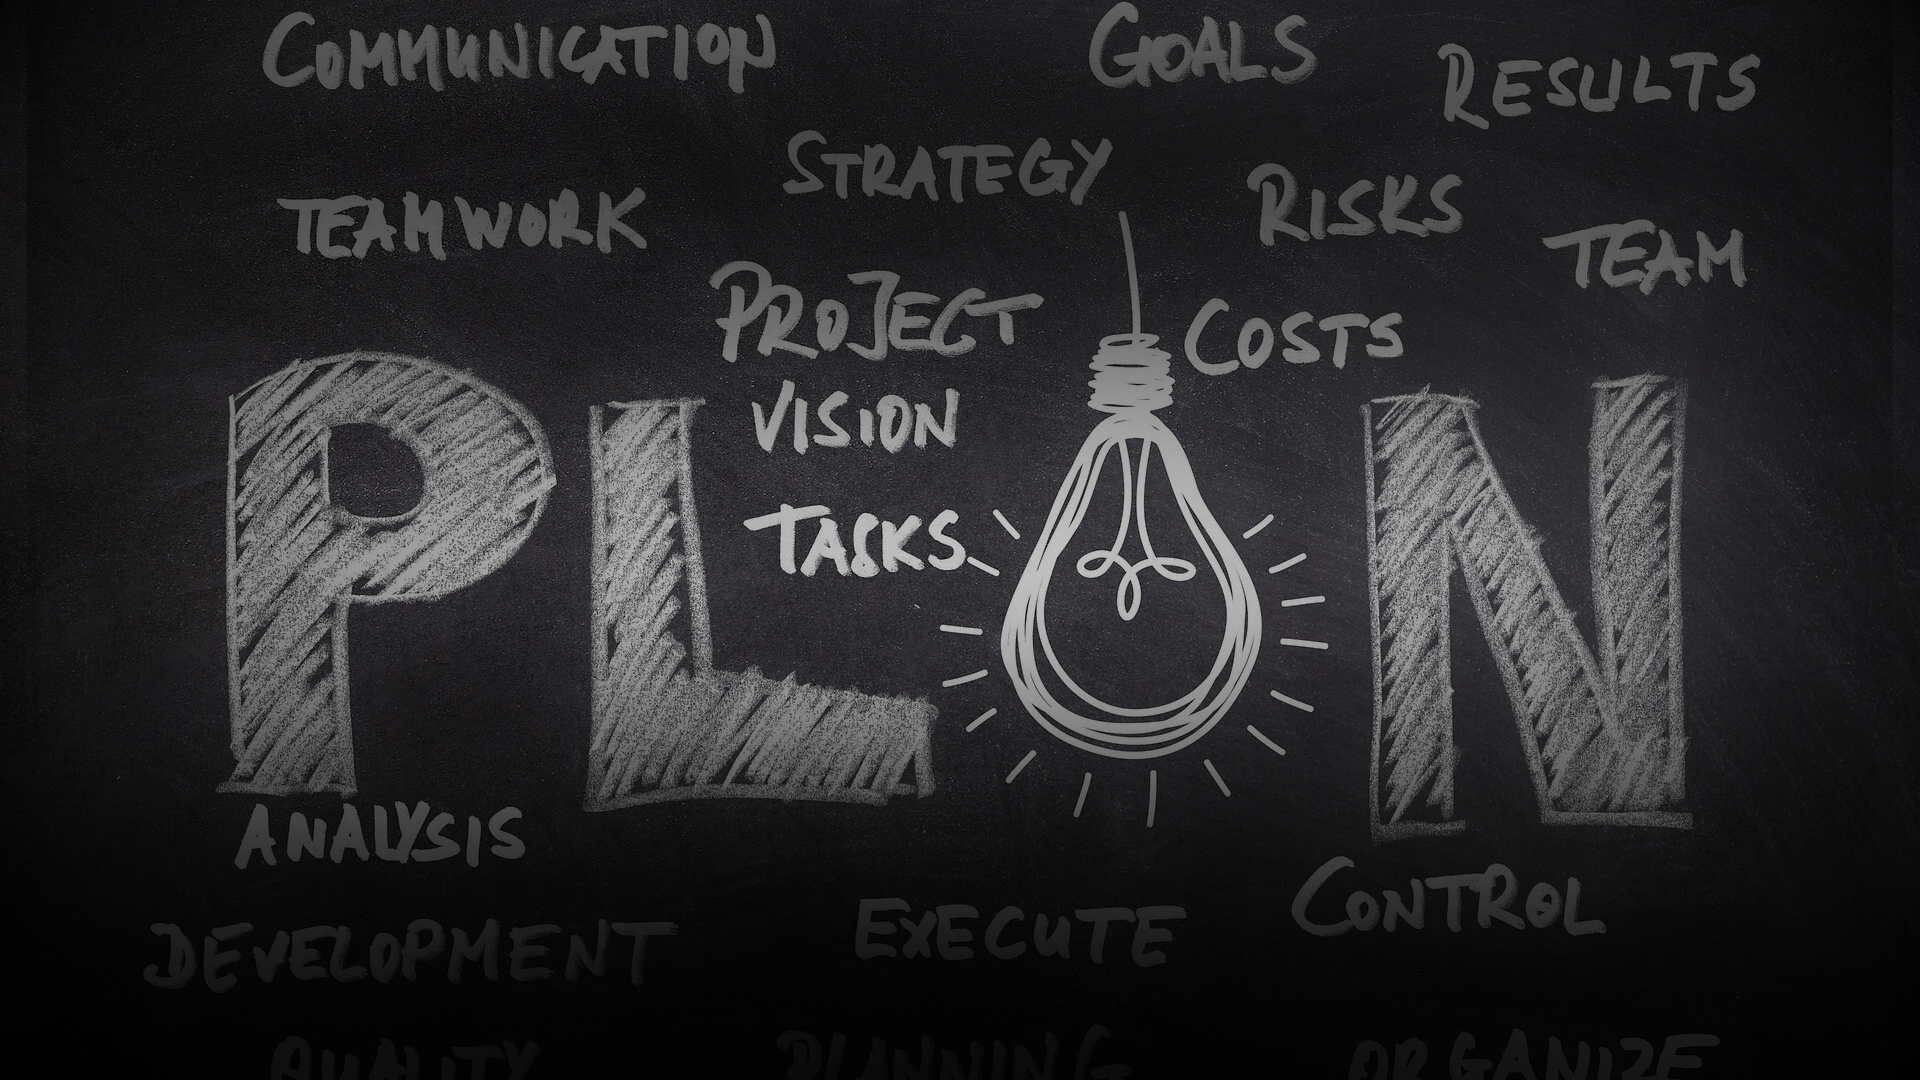 COMMUNICATION
GOALS
RESULTS
STRATEGY
TEAMWORK
RISKS
TEAM
PROJECT
COSTS
VISION
TASKS
PL N
ANALYSIS
CONTROL
EXECUTE
DEVELOPMENT
QUALITY
PLANNING
ORGANIZE